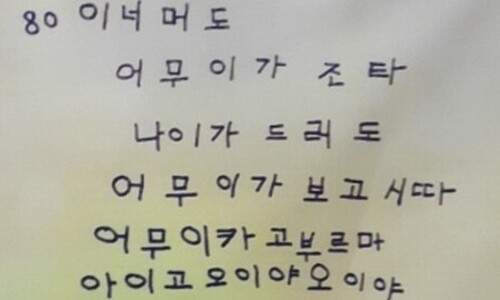 80 이너머도
어무이가 조타
나이가 드러도
어무이가 보고시따
어무이카고부르마
아이고오이야오이야